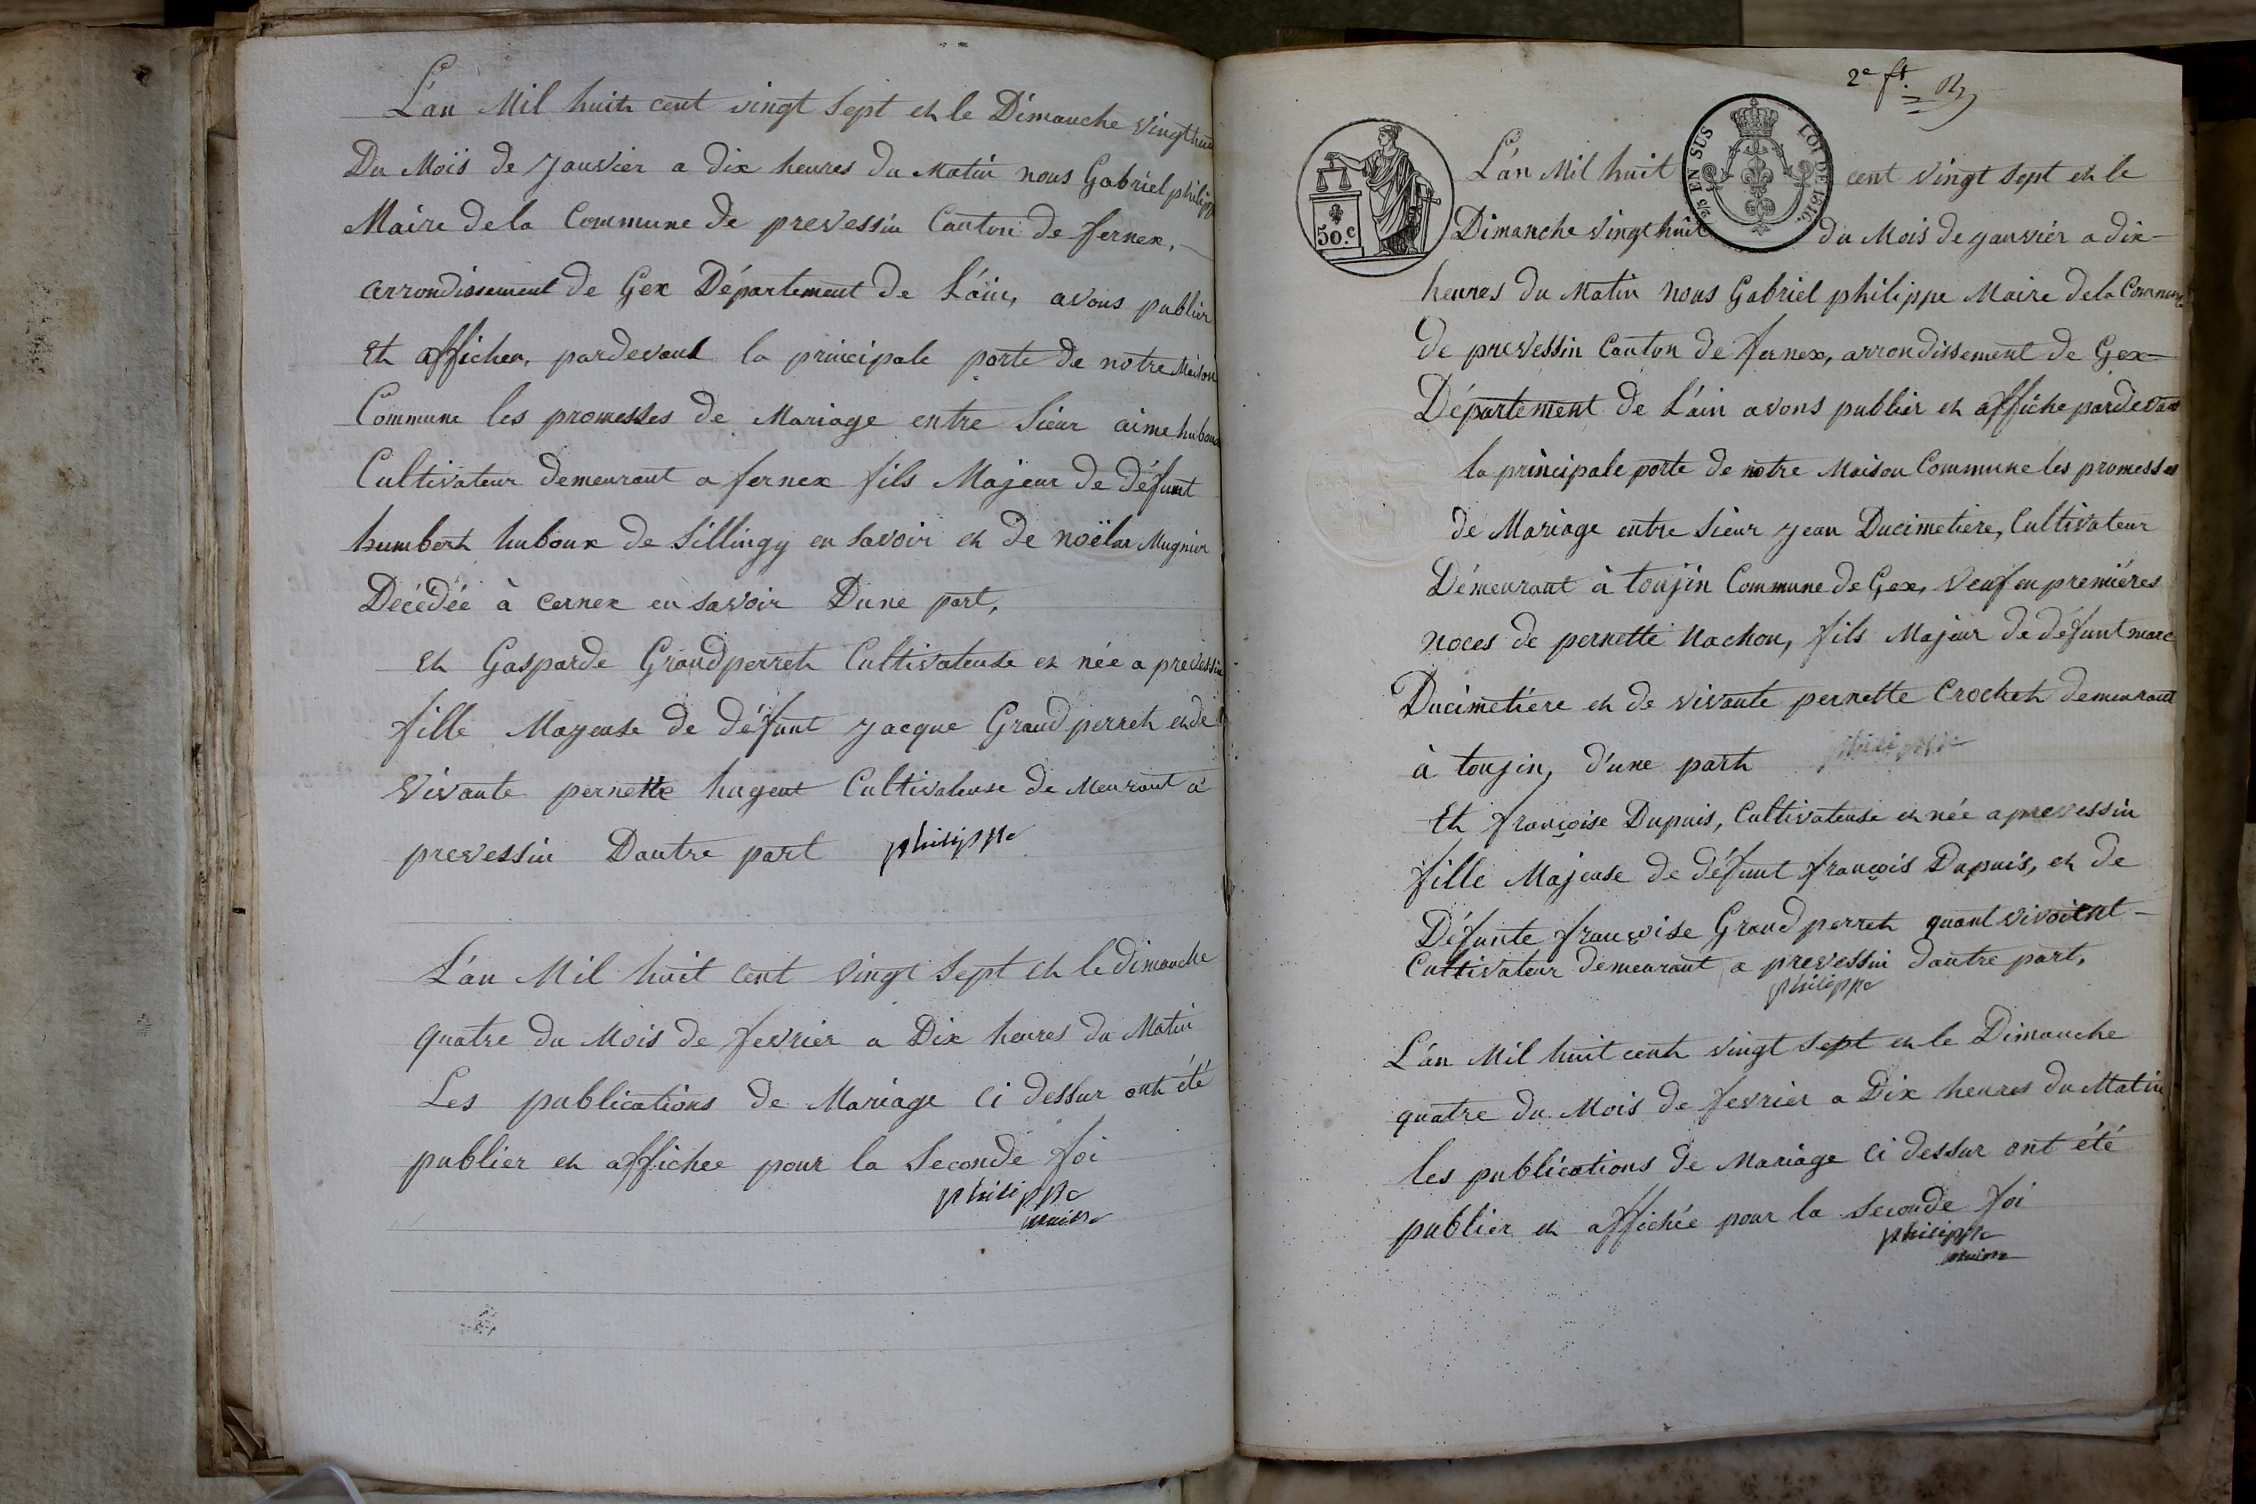 L'an Mil huit cent vingt Sept et le Dimanche vingt huit
Du Moïs de Janvier a dix heures du Matin nous Gabriel philippe
Maire dela Commune De prevessin Canton de fernex,
arrondissement de Gex Département de L'áin, avons publier
Et afficher, pardevant la principale porte de notre Maison
Commune les promesses de Mariage entre Sieur aime huboux
Cultivateur Demeurant a fernex fils Majeur de défunt
humbert huboux de Sillingy en Savoir et de noëlar Mugnier
Décédée à Cernex en Savoir Dune part,
Et Gasparde Grandperret Cultivateuse et née a prevessin
fille Mageuse de défunt Jacque Grandperret et de
Vivante pernette hugent Cultivateuse de Meurant a
prevessin Dautre part philippe
L'an Mil huit Cent vingt Sept et le dimanche
quatre du Mois de fevrier a Dix heures du Matin
Les publications de Mariage Ci dessur ont été
publier et affichee pour la Seconde foi
philippe
maire
2e ft.
EN SUS LOI DE 1816.
50.c
L'án Mil huit cent vingt Sept et le
Dimanche vingt huit du Mois de Janvier a dix
heures du Matin nous Gabriel philippe Maire dela Commune
de prevessin Canton de fernex, arrondissement de Gex
Département de L'ain avons publier et affiche pardevant
la principale porte de notre Maison Commune les promesses
de Mariage entre Sieur Jean Ducimetiere, Cultivateur
Démeurant à toujin Commune de Gex, Veuf en premiéres
noces de pernette Nachon, fils Majeur de défunt marc
Ducimetiére et de vivante pernette Crochet demeurant
à toujin, d'une part philippe
Et françoise Dupuis, Cultivateuse et née a prevessin
fille Majeuse de défunt françois Dupuis, et de
Défunte françoise Grandperret quant vivoitent
Cultivateur demeurant a prevessin dautre part,
philippe
L'án Mil huit cent vingt Sept et le Dimanche
quatre du Mois de fevrier a Dix heures du Matin
les publications de Mariage Ci dessur ont été
publier et affichée pour la Seconde foi
philippe
maire